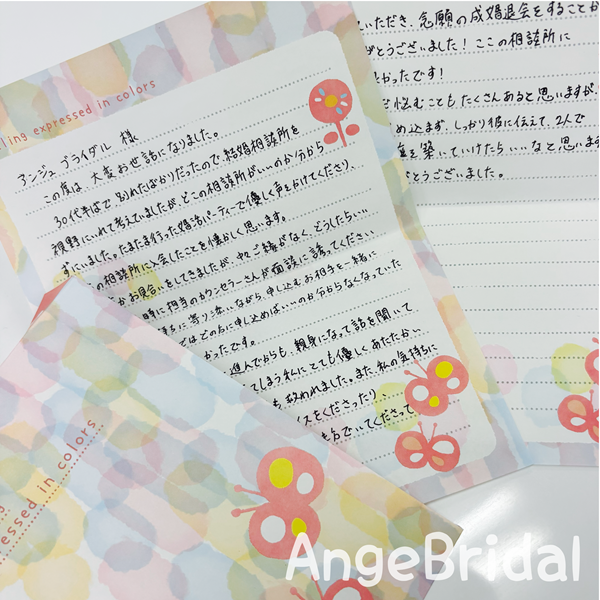 ling expressed in colors
アンジュ ブライダル 様
この度は、大変お世話になりました。
30代半ばで別れたばかりだったので結婚相談所を
視野にいれて考えていましたが、どこの相談所がいいのか分から
ずにいました。たまたま行った婚活パーティーで優しく声をかけてくださり、
の相談所に入会したことを懐かしく思います。
お見合いをしてきましたが、ご縁がなく、どうしたらいい
時に担当のカウンセラーさんが面談に誘ってください
寄り添いながら、申し込むお相手を一緒に
ではどの方に申し込めばいいのか分からなくなっていた
かったです。
進んでからも、親身になって話を聞いて
てしまう私にとても優しくあたたかい
も救われました。また、私の気持ちに
イスをくださったり、
でいてくださって
いただき、念願の成婚退会をすることが
がとうございました！ここの相談所に
よかったです！
悩むこともたくさんあると思いますが、
め込まず、しっかり彼に伝えて、2人で
を築いていけたらいいなと思います
がとうございました。
essed in colors
AngeBridal